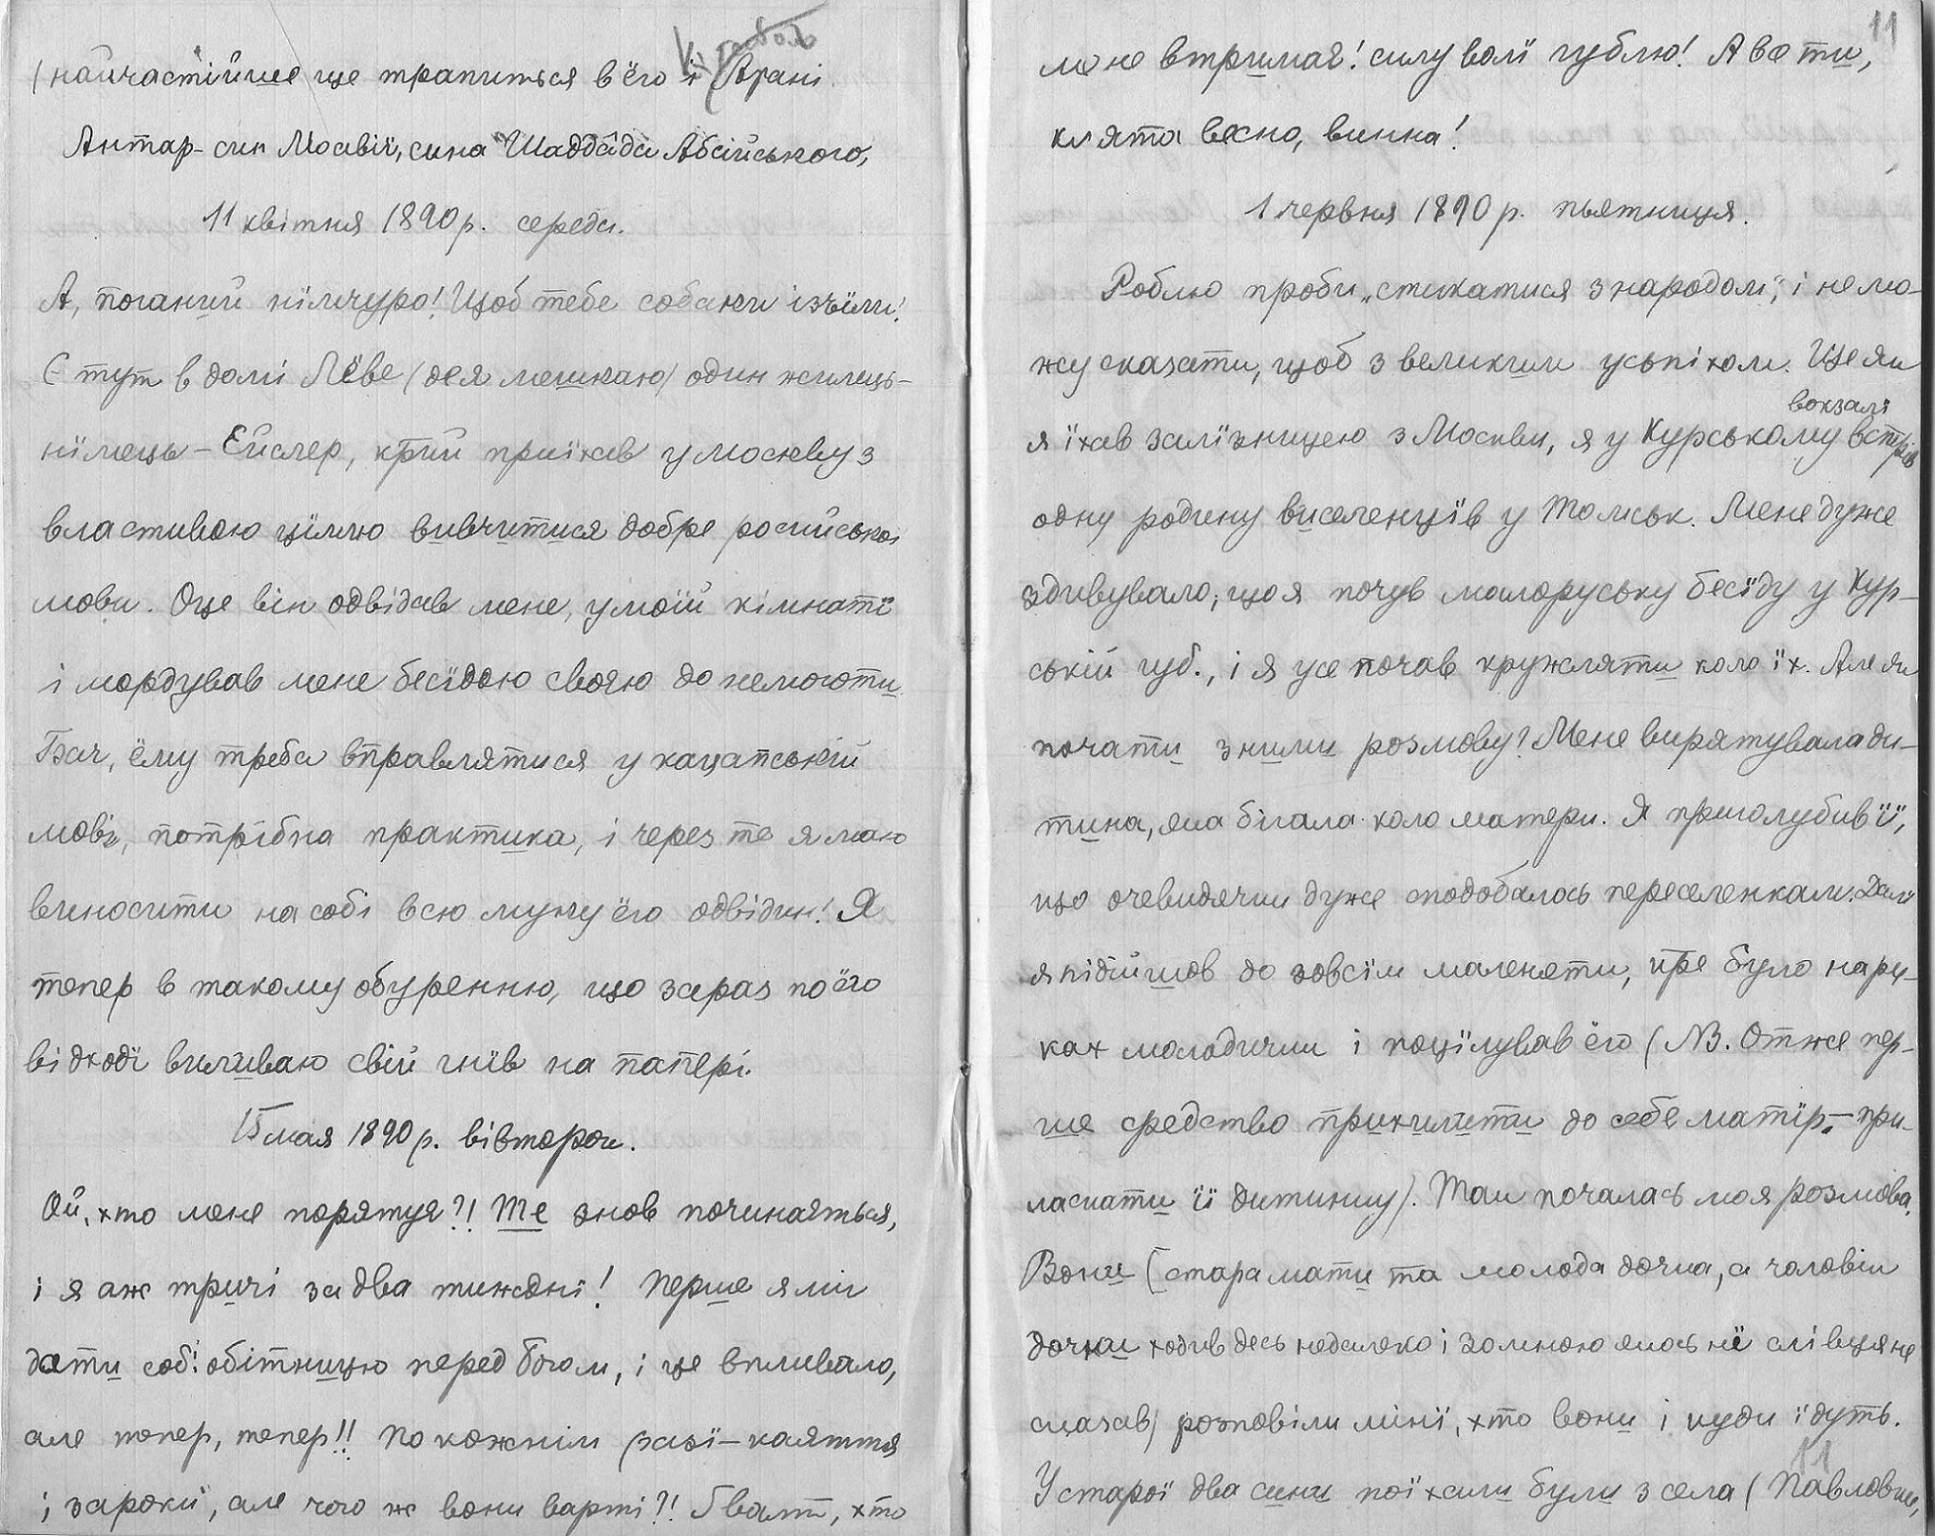 (найчастійше це трапиться в ёго і Аграні.
Антар - син Моавії, сина Шаддâда Абсійського,
11 квітня 1890 р. середа.
А, поганий німчуро! Щоб тебе собаки ізъїли!
Є тут в домі Лёве (де я мешкаю) один жилець-
нїмець – Ейслер, кт͡рий приїхав у Москву з
властивою цїллю вивчитися добре росийської
мови. Оце він одвідав мене, у моїй кімнатї
і мордував мене бесїдою своєю до немоготи.
Бач, ёму треба вправлятися у кацапській
мові, потрібна практика, і через те я маю
виносити на собі всю муку ёго одвідин! Я
тепер в такому обуренню, що зараз по ёго
відходї виливаю свій гнїв на папері.
15 мая 1890 р. вівторок.
Ой, хто мене порятує?! Те знов починається,
і я аж тричі за два тижднї! Перше я міг
дати собі обітницю перед Богом, і це впливало,
але тепер, тепер!! По кожнім разї – каяття
і зароки, але чого ж вони варті?! Гвалт, хто
11
мене втримає! силу волї гублю! А все ти,
клята весно, винна!
1 червня 1890 р. пьятниця.
Роблю проби „стикатися з народом", і не мо-
жу сказати, щоб з великим успіхом. Ще як
вокзалї
я їхав залїзницею з Москви, я у Курському встрів
одну родину виселенцїв у Томськ. Мене дуже
здивувало, що я почув малоруську бесїду у Кур-
ській губ., і я усе почав кружляти коло їх. Але як
почати з ними розмову? Мене вирятувала ди-
тина, яка бігала коло матери. Я приголубив її,
що очевидячки дуже сподобалось переселенкам. Далї
я підійшов до зовсїм маленяти, кт͡ре було на ру-
ках молодички і поцїлував ёго (NB. Отже пер-
ше средство прихилити до себе матір, – при-
ласкати її дитинку). Так почалась моя розмова.
Вони (стара мати та молода дочка, а чоловік
дочки ходив десь недалеко і зо мною якось нї слівця не
сказав) розповіли мінї, хто вони і куди їдуть.
У старої два сини поїхали були з села (Павловки,
11